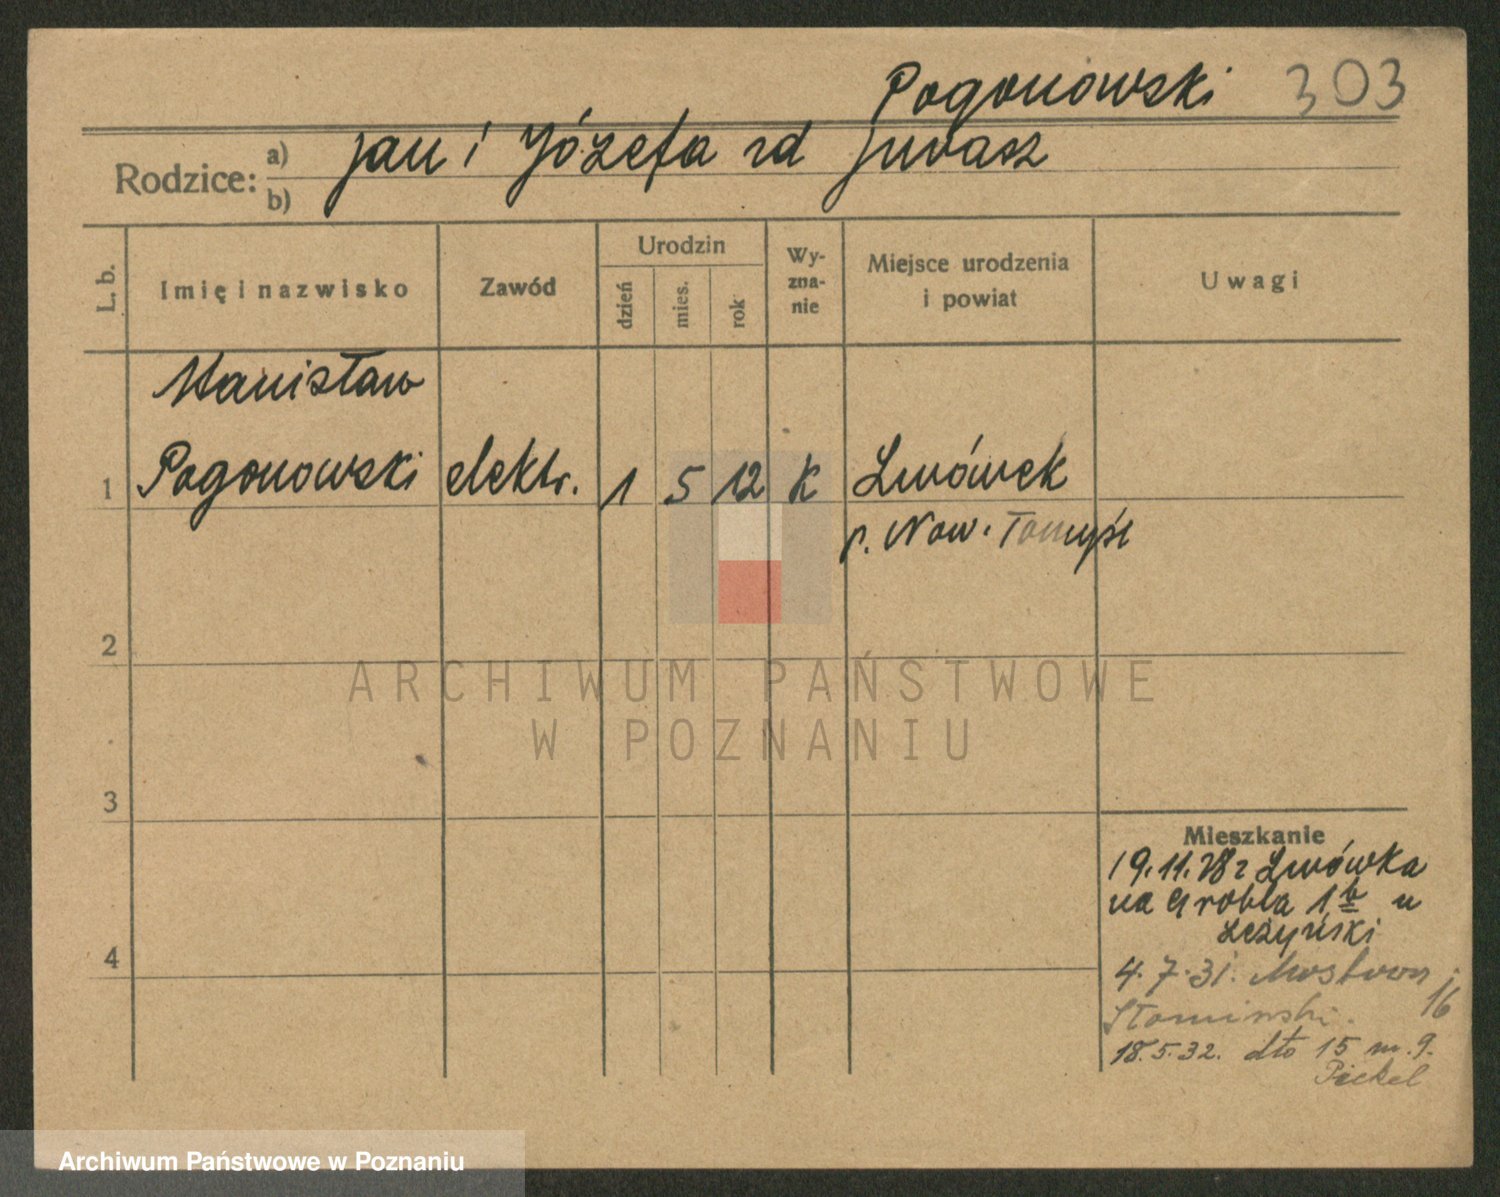 Pogonowski 303
Rodzice: a) Jan i Józefa rd Juvasz
b)
L. b.
Imię i nazwisko
Zawód
Urodzin
dzień
mies.
rok
Wy-
zna-
nie
Miejsce urodzenia
i powiat
Uwagi
Stanisław
1 Pogonowski elektr. 1 5 12 K Lwówek
p. Now. Tomyśl
2
ARCHIWUM PAŃSTWOWE
W POZNANIU
3
Mieszkanie
19.11.28 z Lwówka
na Grobla 1 b u
Leżyński
4
4.7.31. Mostowa
Słominski. 16
18.5.32. dto 15 m. 9.
Pickel
Archiwum Państwowe w Poznaniu